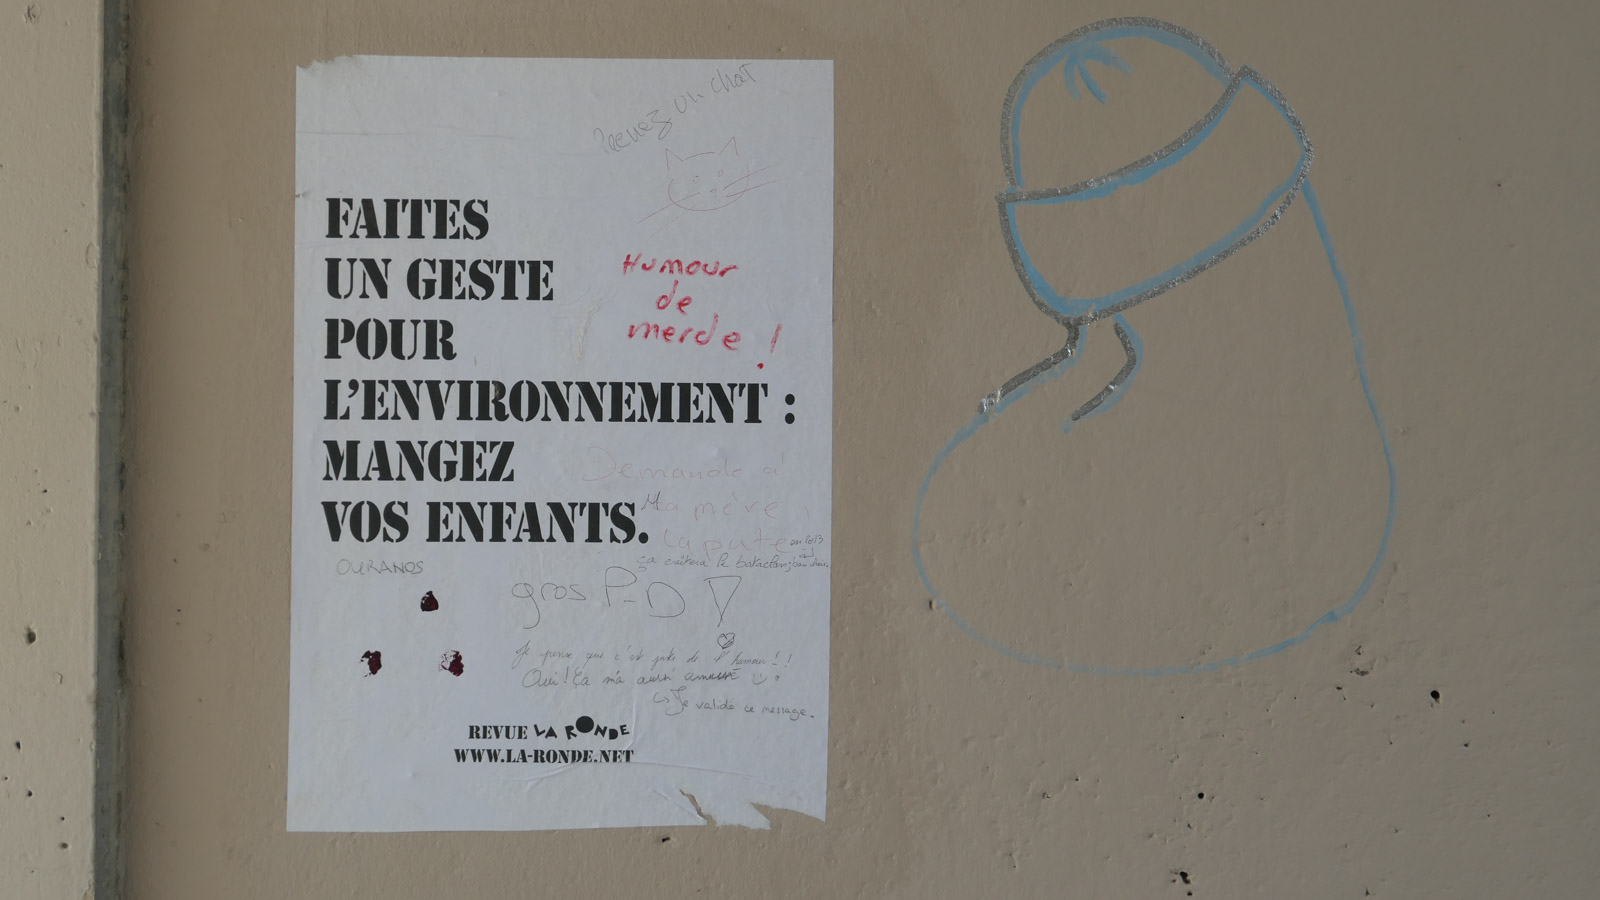 Prenez un chat
FAITES
UN GESTE
POUR
L'ENVIRONNEMENT :
MANGEZ
VOS ENFANTS.
Humour
de
merde !
Demande à
Ma mère
la pute
OURANOS
gros P-D
Je pense que c'est juste de l'humour !!
Oui ! Ça m'a aussi amusé
↳ Je valide ce message.
REVUE LA RONDE
WWW.LA-RONDE.NET